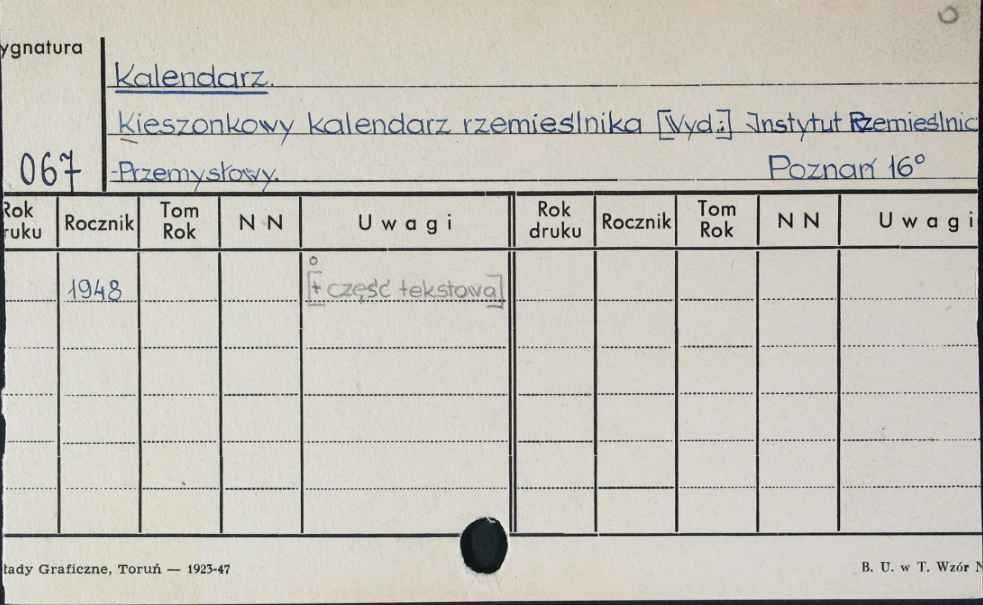 ygnatura
Kalendarz.
Kieszonkowy kalendarz rzemieślnika [Wyd.:] Instytut Rzemieślnic
067 -Przemysłowy. Poznań 16°
Rok ruku Rocznik Tom Rok N N Uwagi Rok druku Rocznik Tom Rok N N Uwagi
1948 [+ część tekstowa]
łady Graficzne, Toruń — 1923-47 B. U. w T. Wzór N